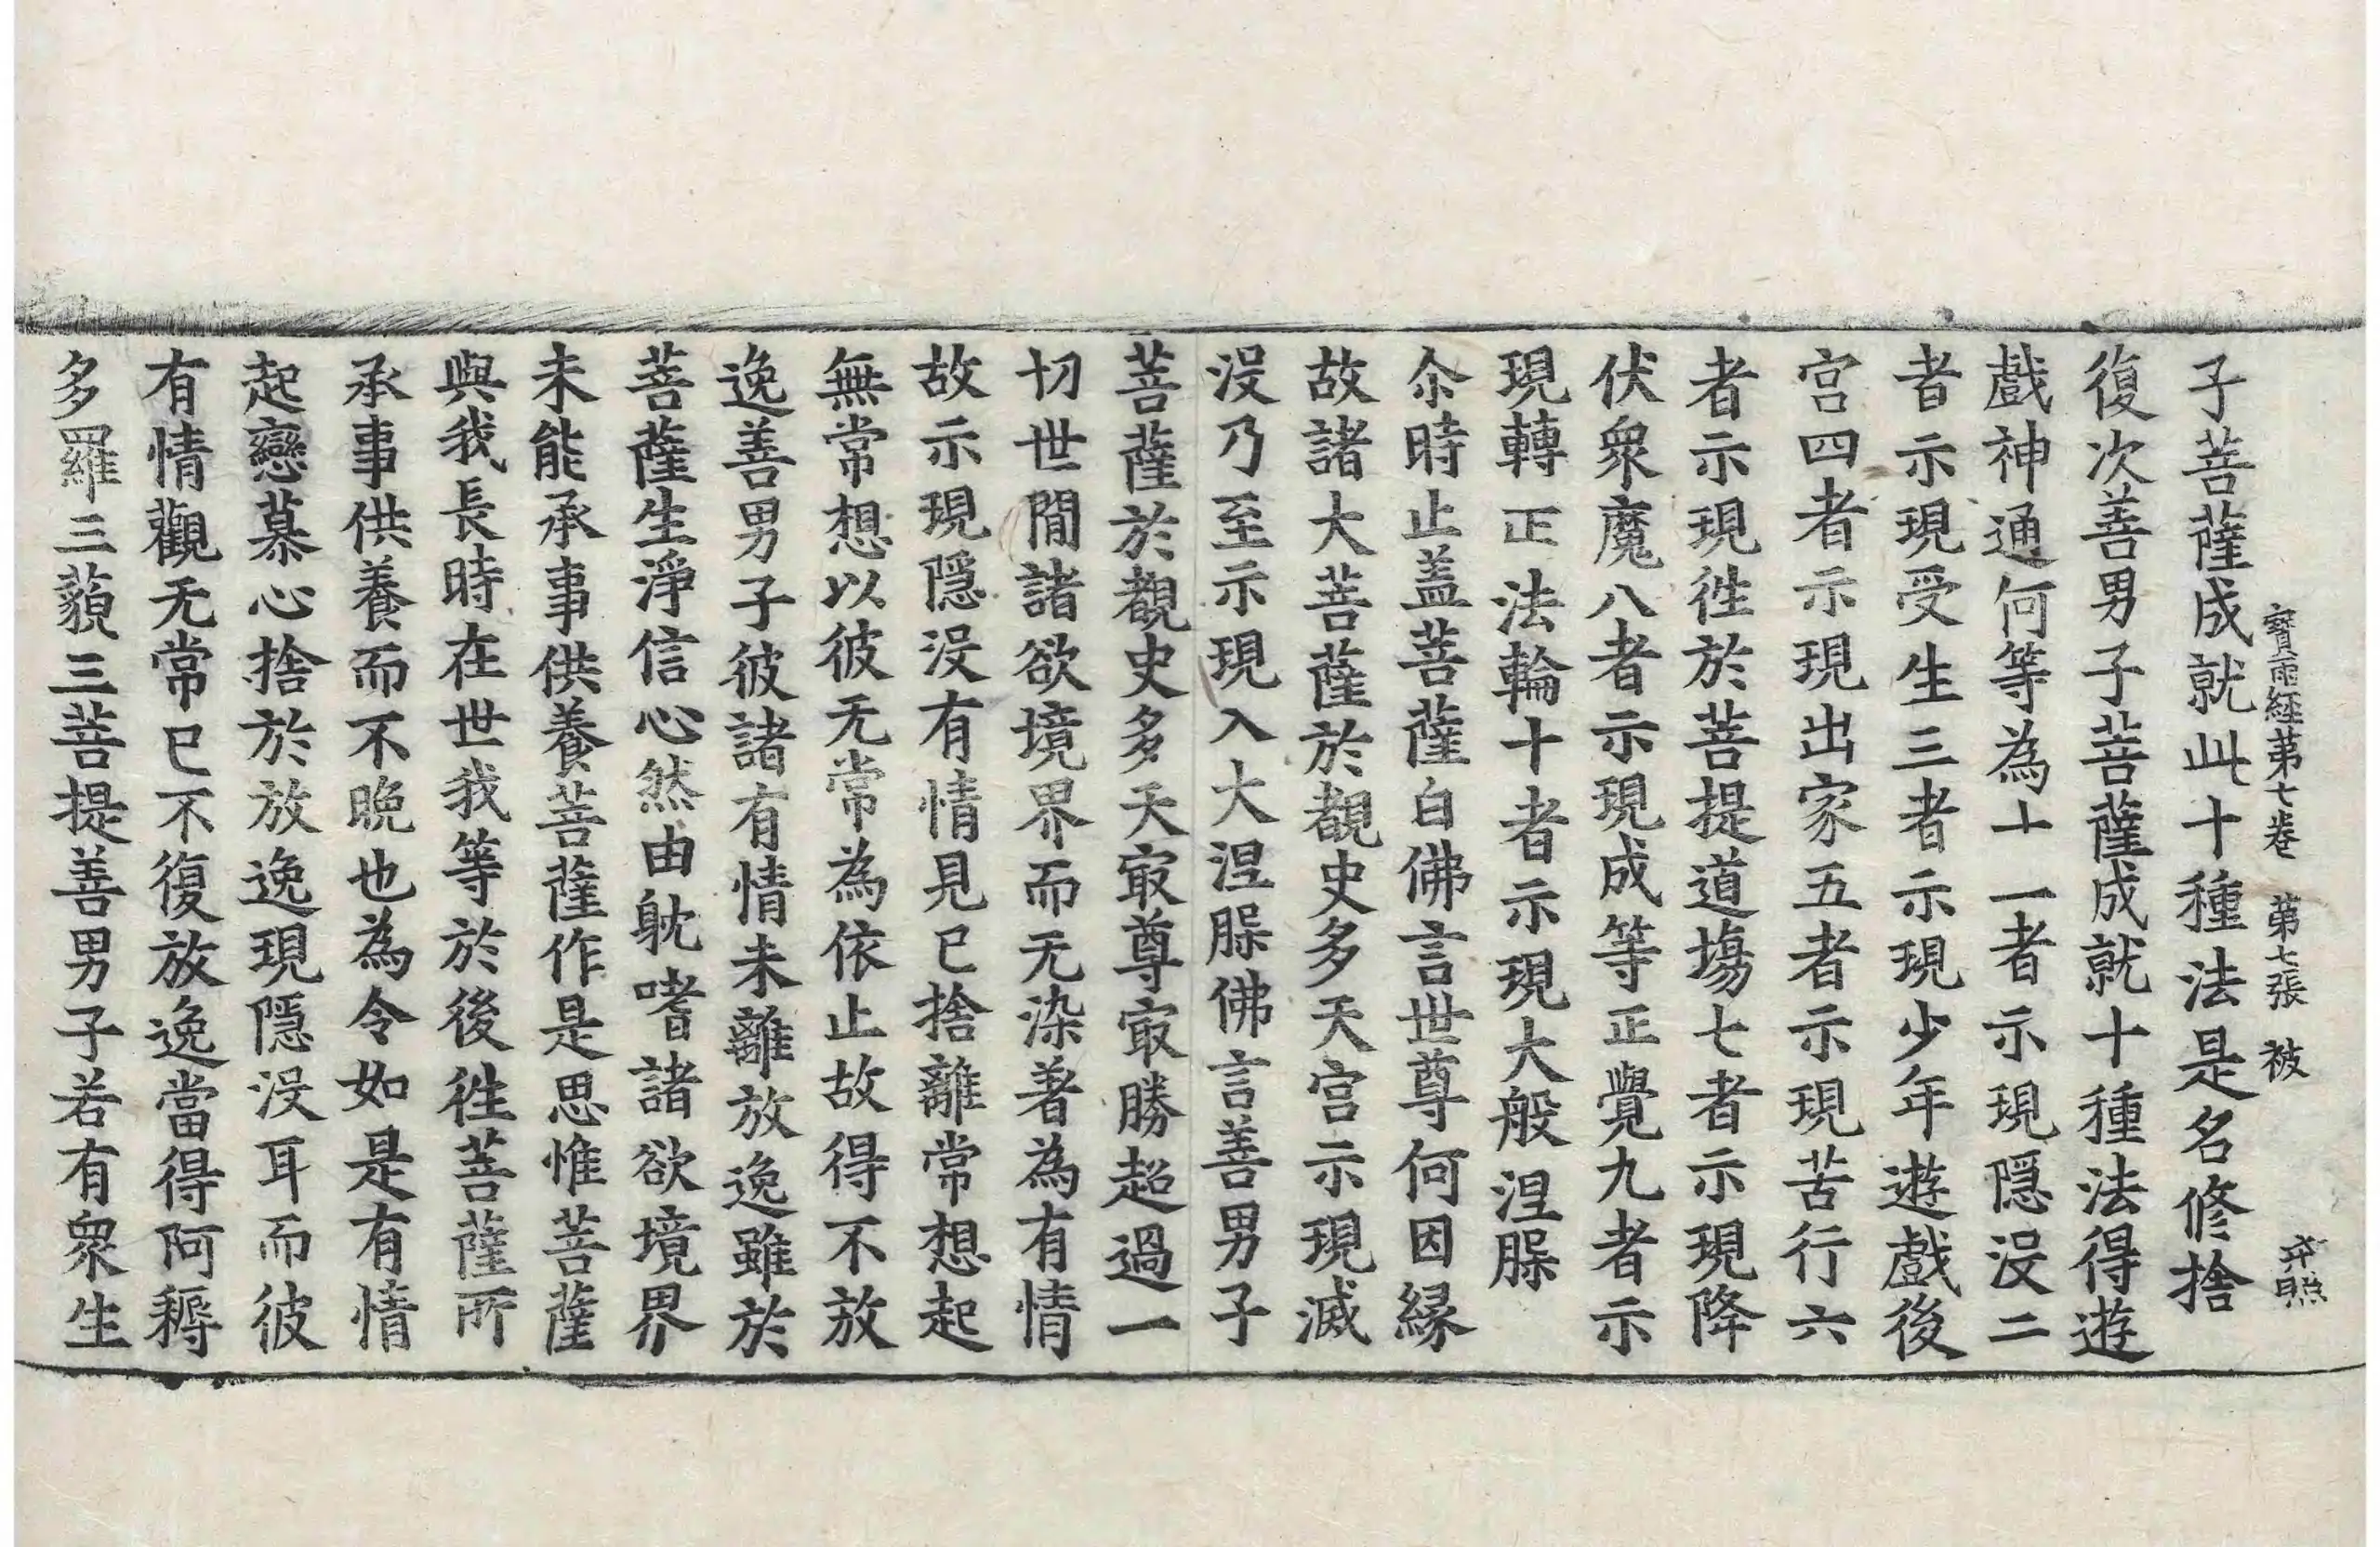 寶雨經第七卷 第七張 被
子菩薩成就此十種法是名修捨
復次善男子菩薩成就十種法得遊
戲神通何等為十一者示現隱没二
者示現受生三者示現少年遊戲後
宮四者示現出家五者示現苦行六
者示現徃於菩提道場七者示現降
伏衆魔八者示現成等正覺九者示
現轉正法輪十者示現大般涅槃
尒時止盖菩薩白佛言世尊何因緣
故諸大菩薩於覩史多天宮示現滅
没乃至示現入大涅槃佛言善男子
菩薩於覩史多天㝡尊㝡勝超過一
切世間諸欲境界而无染著為有情
故示現隱没有情見已捨離常想起
無常想以彼无常為依止故得不放
逸善男子彼諸有情未離放逸雖於
菩薩生淨信心然由躭嗜諸欲境界
未能承事供養菩薩作是思惟菩薩
與我長時在世我等於後徃菩薩所
承事供養而不晚也為令如是有情
起戀慕心捨於放逸現隱没耳而彼
有情觀无常已不復放逸當得阿耨
多羅三藐三菩提善男子若有衆生